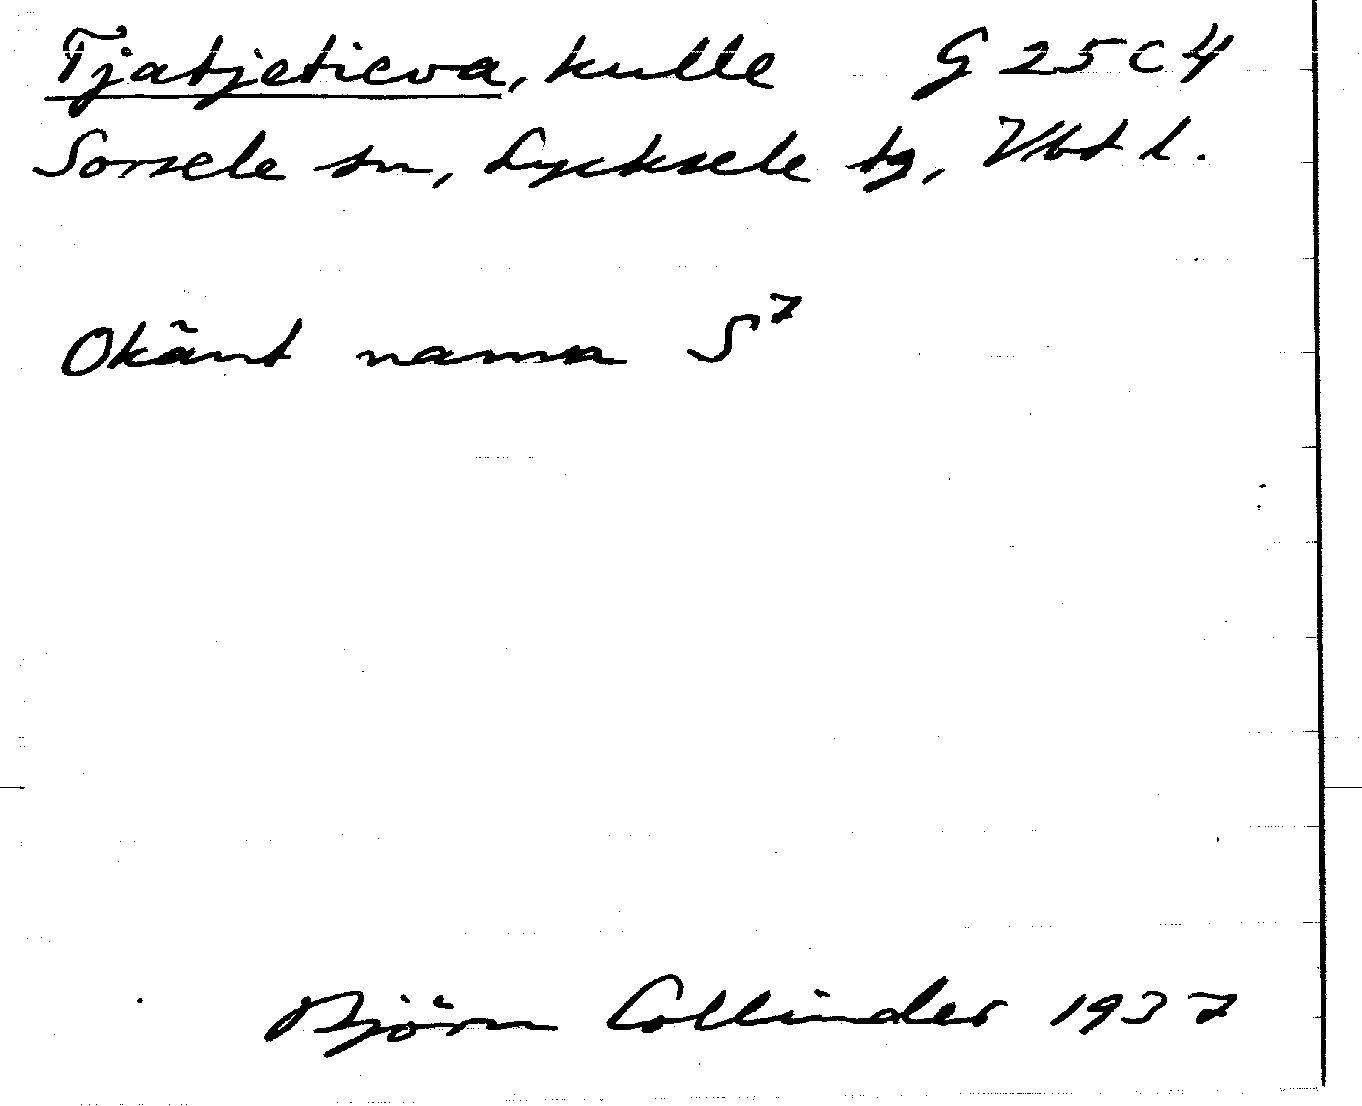 Tjatjetieva, kulle G 25 C 4
Sorsele sn, Lycksele tg, Vbt l.
Okänt namn S7
Björn Collinder 1937